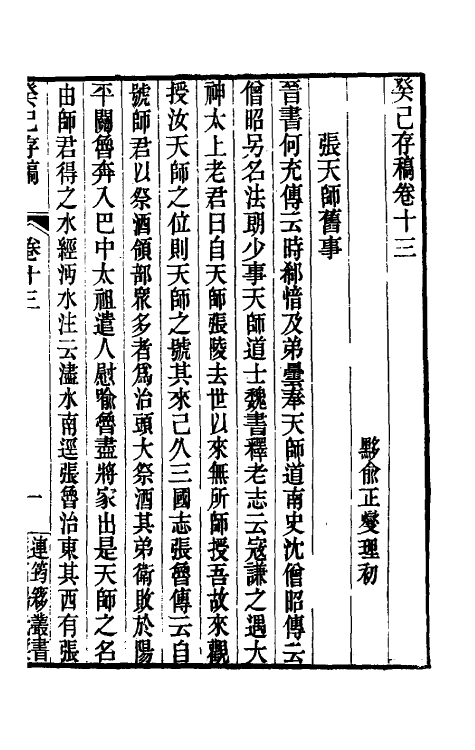 癸巳存稿卷十三
黟俞正燮理初
張天師舊事
晉書何充傳云時郗愔及弟曇奉天師道南史沈僧昭傳云
僧昭另名法朗少事天師道士魏書釋老志云寇謙之遇大
神太上老君曰自天師張陵去世以來無所師授吾故來觀
授汝天師之位則天師之號其來已久三國志張魯傳云自
號師君以祭酒領部衆多者爲治頭大祭酒其弟衛敗於陽
平關魯奔入巴中太祖遣人慰喻魯盡將家出是天師之名
由師君得之水經沔水注云濜水南逕張魯治東其西有張
癸巳存稿
卷十三
一
連筠簃叢書